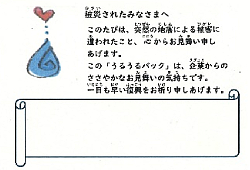 被災されたみなさまへ
このたびは、突然の地震による被害に
遭われたこと、心からお見舞い申し
あげます。
この「うるうるパック」は、企業からの
ささやかなお見舞いの気持ちです。
一日も早い復興をお祈り申しあげます。